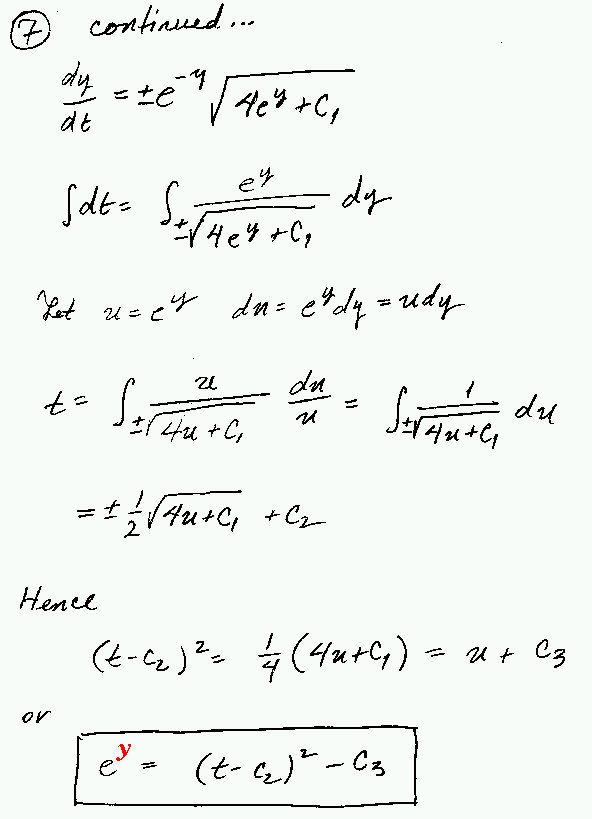 ⑦ continued...
dy/dt = ±e^-y √(4e^y + C₁)
∫dt = ∫ e^y / ±√(4e^y + C₁) dy
Let u = e^y du = e^y dy = u dy
t = ∫ u / ±√(4u + C₁) du/u = ∫ 1 / ±√(4u + C₁) du
= ± 1/2 √(4u + C₁) + C₂
Hence
(t - C₂)² = 1/4 (4u + C₁) = u + C₃
or
e^y = (t - C₂)² - C₃